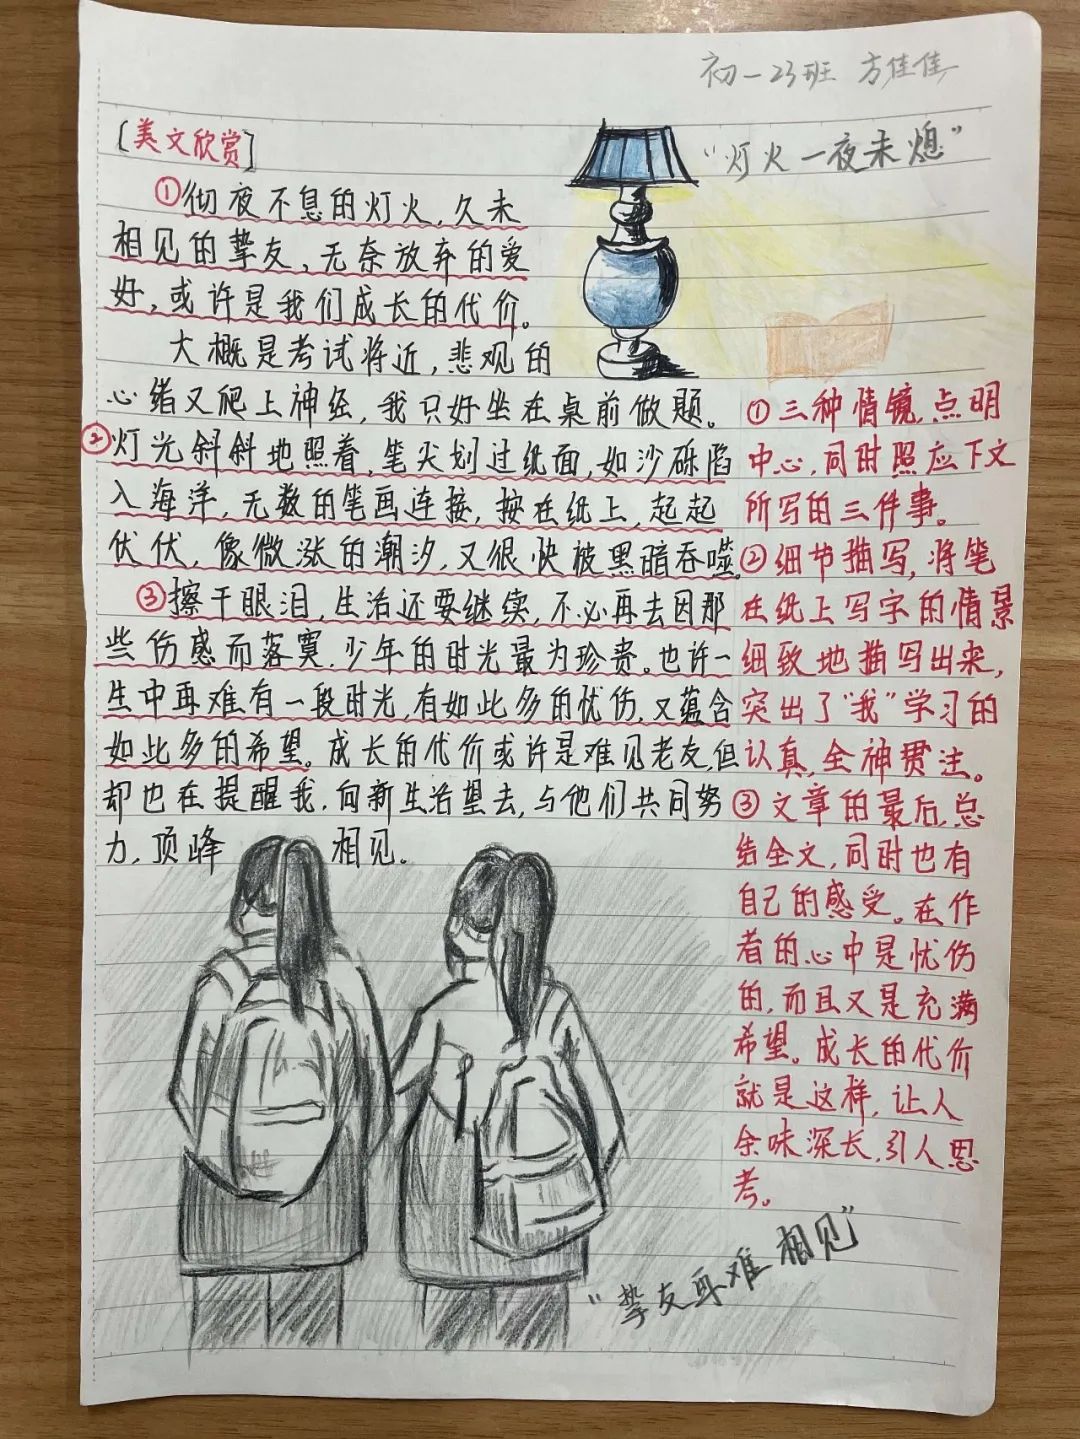 初一23班 方佳佳
[美文欣赏]
"灯火一夜未熄"
①彻夜不息的灯火,久未
相见的挚友,无奈放弃的爱
好,或许是我们成长的代价。
大概是考试将近,悲观的
心绪又爬上神经,我只好坐在桌前做题。
②灯光斜斜地照着,笔尖划过纸面,如沙砾陷
入海洋 无数的笔画连接,按在纸上,起起
伏伏,像微涨的潮汐,又很快被黑暗吞噬。
③擦干眼泪,生活还要继续,不必再去因那
些伤感而落寞.少年的时光最为珍贵。也许一
生中再难有一段时光,有如此多的忧伤,又蕴含
如此多的希望。成长的代价或许是难见老友,但
却也在提醒我,向新生活望去,与他们共同努
力,顶峰相见。
①三种情镜,点明
中心,同时照应下文
所写的三件事。
②细节描写,将笔
在纸上写字的情景
细致地描写出来,
突出了"我"学习的
认真,全神贯注。
③文章的最后,总
结全文,同时也有
自己的感受。在作
者的心中是忧伤
的,而且又是充满
希望。成长的代价
就是这样,让人
余味深长,引人思
考。
"挚友再难相见"